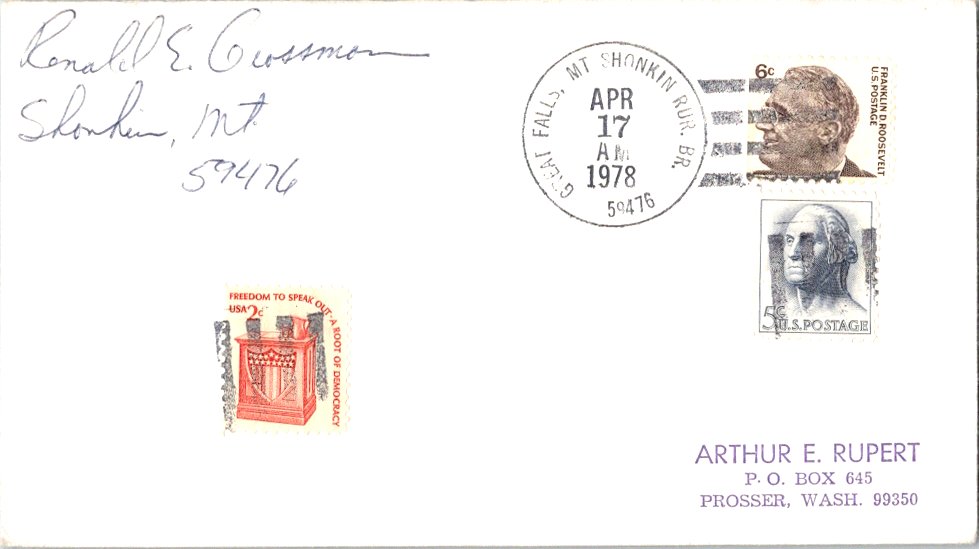 Ronald E. Grossman
Shonkin, Mt.
59476
GREAT FALLS, MT SHONKIN RUR. BR.
APR
17
AM
1978
59476
6c
FRANKLIN D. ROOSEVELT
U.S. POSTAGE
5c
U.S. POSTAGE
FREEDOM TO SPEAK OUT-A ROOT OF DEMOCRACY
USA 2c
ARTHUR E. RUPERT
P. O. BOX 645
PROSSER, WASH. 99350